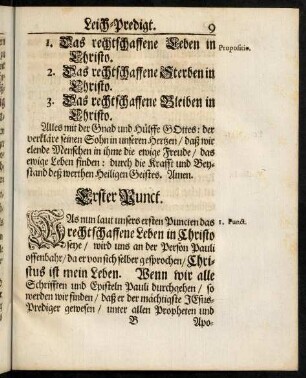 Leich-Predigt. 9
1. Das rechtschaffene Leben in Propositio.
Christo.
2. Das rechtschaffene Sterben in
Christo.
3. Das rechtschaffene Bleiben in
Christo.
Alles mit der Gnad und Hülffe GOttes: der
verkläre seinen Sohn in unseren Hertzen / daß wir
elende Menschen in ihme die ewige Freude / das
ewige Leben finden: durch die Krafft und Bey-
stand deß werthen Heiligen Geistes. Amen.
Erster Punct.
WAs nun laut unsers ersten Puncten das 1. Punct.
rechtschaffene Leben in Christo
seye / wird uns an der Person Pauli
offenbahr / da er von sich selber gesprochen / Chri-
stus ist mein Leben. Wenn wir alle
Schrifften und Episteln Pauli durchgehen / so
werden wir finden / daß er der mächtigste JEsus-
Prediger gewesen / unter allen Propheten und
B Apo-